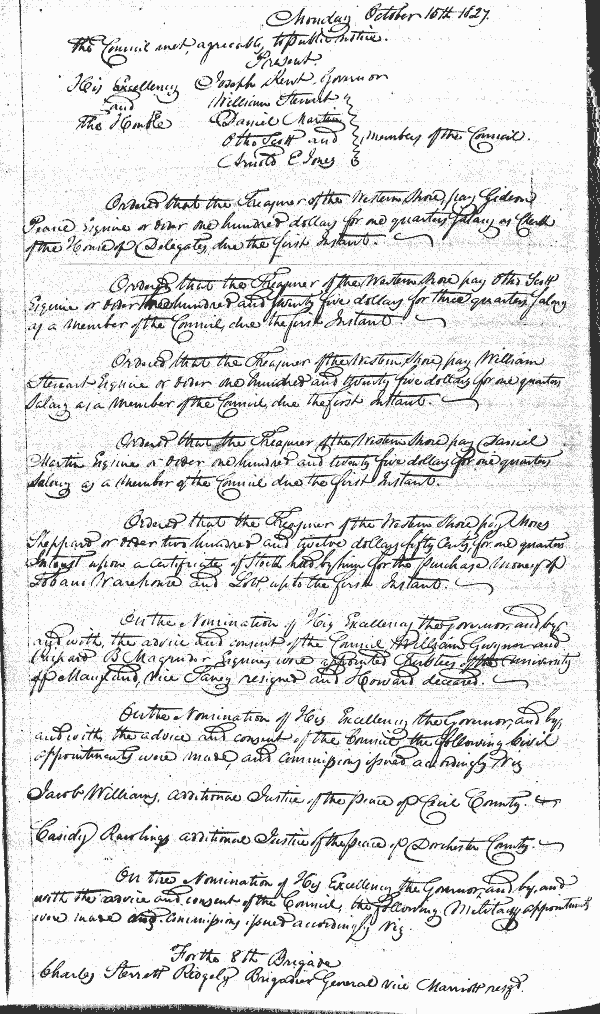 Monday October 15th 1827.
The Council met, agreeably to public notice.
Present.
His Excellency Joseph Kent, Governor
and William Stewart
The Honble Daniel Martin
Otho Scott and members of the Council.
Arnold E Jones
Ordered that the Treasurer of the Western Shore, pay Gideon
Pearce Esquire or order one hundred dollars for one quarters Salary as Clerk
of the House of Delegates, due the first Instant.
Ordered that the Treasurer of the Western Shore pay Otho Scott
Esquire or order three hundred and seventy five dollars for three quarters Salary
as a Member of the Council, due the first Instant.
Ordered that the Treasurer of the Western Shore, pay William
Stewart Esquire or order one hundred and twenty five dollars, for one quarters
Salary as a Member of the Council, due the first Instant.
Ordered that the Treasurer of the Western Shore, pay Daniel
Martin Esquire or order one hundred and twenty five dollars for one quarters
Salary as a Member of the Council due the first Instant.
Ordered that the Treasurer of the Western Shore pay Moses
Sheppard or order two hundred and twelve dollars fifty Cents, for one quarters
Interest upon a Certificate of Stock held by him for the purchase money of
Tobacco Warehouse and Lots, up to the first Instant.
On the Nomination of His Excellency the Governor, and by,
and with, the advice and consent of the Council William Gwynn and
Richard B Magruder, Esquires were appointed Trustees of the University
of Maryland, vice Taney resigned and Howard deceased.
On the Nomination of His Excellency the Governor, and by,
and with, the advice and consent of the Council, the following Civil
appointments were made, and commissions issued accordingly Viz
Jacob Williams, additional Justice of the Peace of Cecil County.
Cassidy Rawlings additional Justice of the peace of Dorchester County.
On the Nomination of His Excellency the Governor, and by, and
with the advice and consent of the Council, the following Military appointments
were made and Commissions issued accordingly Viz.
For the 8th Brigade
Charles Sterrett Ridgely Brigadier General vice Marriott resgd.